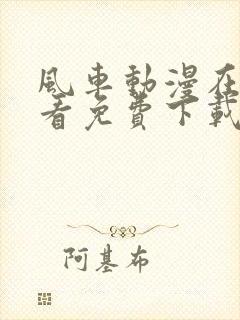 風車動漫在
看免費下載
阿基布